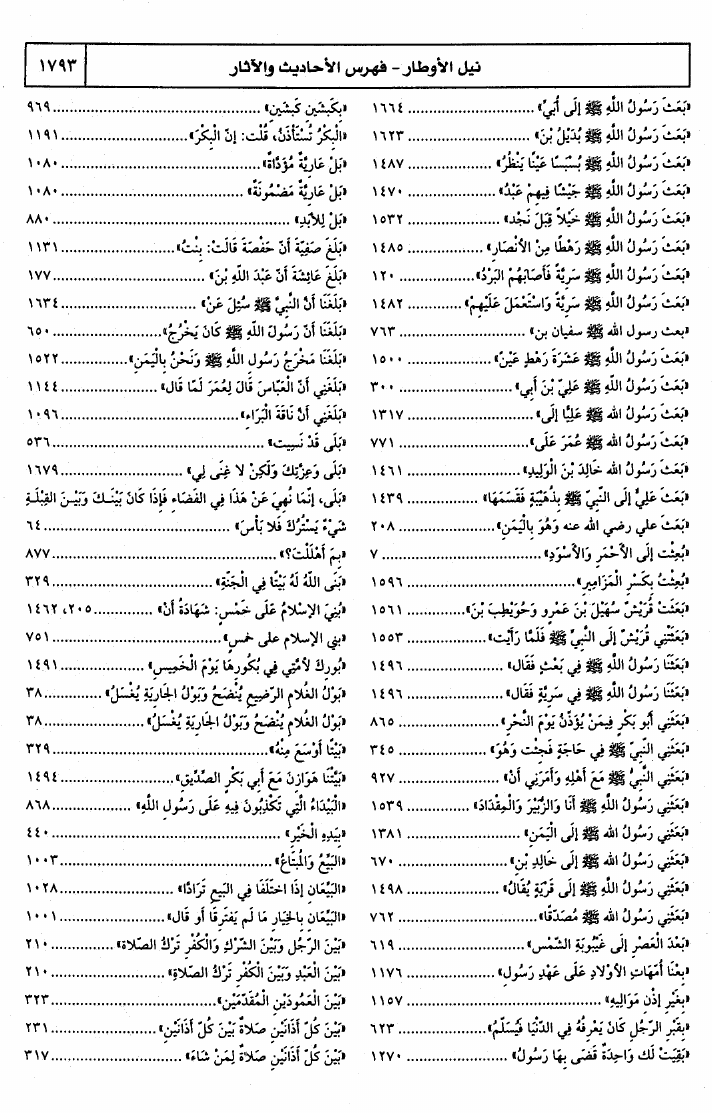 نيل الأوطار - فهرس الأحاديث والآثار
١٧٩٣
«بَعَثَ رَسُولُ اللَّهِ ﷺ إلَى أُبَيٍّ» ............................ ١٦٦٤
«بَعَثَ رَسُولُ اللَّهِ ﷺ بُدَيْلُ بْنَ» ............................ ١٦٢٣
«بَعَثَ رَسُولُ اللَّهِ ﷺ بُسْبَسًا عَيْنًا يَنْظُرُ» .................... ١٤٨٧
«بَعَثَ رَسُولُ اللَّهِ ﷺ جَيْشًا فِيهِمْ عَبْدُ» .................... ١٤٧٠
«بَعَثَ رَسُولُ اللَّهِ ﷺ خَيْلاً قِبَلَ نَجْدٍ» .................... ١٥٣٢
«بَعَثَ رَسُولُ اللَّهِ ﷺ رَهْطًا مِنْ الأَنْصَارِ» ................. ١٤٨٥
«بَعَثَ رَسُولُ اللَّهِ ﷺ سَرِيَّةً فَأَصَابَهُمْ البَرْدُ» ................. ١٢٠
«بَعَثَ رَسُولُ اللَّهِ ﷺ سَرِيَّةً وَاسْتَعْمَلَ عَلَيْهِمْ» ............. ١٤٨٢
«بعث رسول الله ﷺ سفيان بن» ............................ ٧٦٣
«بَعَثَ رَسُولُ اللَّهِ ﷺ عَشَرَةَ رَهْطٍ عَيْنً» .................... ١٥٠٠
«بَعَثَ رَسُولُ اللَّهِ ﷺ عَلِيّ بْنَ أَبِي» ........................ ٣٠٠
«بَعَثَ رَسُولُ الله ﷺ عَلِيًّا إلَى» ............................ ١٣١٧
«بَعَثَ رَسُولُ الله ﷺ عُمَرَ عَلَى» ............................ ٧٧١
«بَعَثَ رَسُولُ الله ﷺ خَالِدَ بْنَ الْوَلِيدِ» .................... ١٤٦١
«بَعَثَ عَلِيٌّ إلَى النَّبِيِّ ﷺ بِذُهَيْبَةٍ فَقَسَمَهَا» ............... ١٤٣٩
«بَعَثَ علي رضي الله عنه وَهُوَ بِالْيَمَنِ» .................... ٢٠٨
«بُعِثْت إلَى الأَحْمَرِ وَالأَسْوَدِ» ............................ ٧
«بُعِثْتُ بِكَسْرِ الْمَزَامِيرِ» ............................ ١٥٩٦
«بَعَثَتْ قُرَيْشٌ سُهَيْلَ بْنَ عَمْرٍو وَحُوَيْطِبَ بْنَ» ............. ١٥٦١
«بَعَثَتْنِي قُرَيْشٌ إلَى النَّبِيِّ ﷺ فَلَمَّا رَأَيْت» ................. ١٥٥٣
«بَعَثَنَا رَسُولُ اللَّهِ ﷺ فِي بَعْثٍ فَقَالَ» .................... ١٤٩٦
«بَعَثَنَا رَسُولُ اللَّهِ ﷺ فِي سَرِيَّةٍ فَقَالَ» .................... ١٤٩٦
«بَعَثَنِي أَبُو بَكْرٍ فِيمَنْ يُؤَذِّنُ يَوْمَ النَّحْرِ» .................... ٨٦٥
«بَعَثَنِي النَّبِيُّ ﷺ فِي حَاجَةٍ فَجِئْت وَهُوَ» ................. ٣٤٥
«بَعَثَنِي النَّبِيُّ ﷺ مَعَ أَهْلِهِ وَأَمَرَنِي أَنْ» .................... ٩٢٧
«بَعَثَنِي رَسُولُ اللَّهِ ﷺ أَنَا وَالزُّبَيْرَ وَالْمِقْدَادَ» ............. ١٥٣٩
«بَعَثَنِي رَسُولُ الله ﷺ إلَى الْيَمَنِ» ........................ ١٣٨١
«بَعَثَنِي رَسُولُ الله ﷺ إلَى خَالِدِ بْنِ» ........................ ٦٧٠
«بَعَثَنِي رَسُولُ اللَّهِ ﷺ إلَى قَرْيَةٍ يُقَالُ» .................... ١٤٩٨
«بَعَثَنِي رَسُولُ الله ﷺ مُصَدِّقًا» ............................ ٧٦٢
«بَعْدَ الْعَصْرِ إلَى غَيْبُوبَةِ الشَّمْسِ» ........................ ٦١٩
«بِعْنَا أُمَّهَاتِ الأَوْلادِ عَلَى عَهْدِ رَسُولِ» .................... ١١٧٦
«بِغَيْرِ إذْنِ مَوَالِيهِ» ............................ ١١٥٧
«بِقَبْرِ الرَّجُلِ كَانَ يَعْرِفُهُ فِي الدُّنْيَا فَيُسَلِّمُ» ............. ٦٢٣
«بَقِيَتْ لَك وَاحِدَةٌ قَضَى بِهَا رَسُولُ» .................... ١٢٧٠
«بِكَبْشَينِ كَبْشَينِ» ............................ ٩٦٩
«الْبِكْرُ تُسْتَأْذَنُ، قُلْت: إنّ الْبِكْرَ» ........................ ١١٩١
«بَلْ عَارِيَّةٌ مُؤَدَّاةٌ» ............................ ١٠٨٠
«بَلْ عَارِيَّةٌ مَضْمُونَةٌ» ............................ ١٠٨٠
«بَلْ لِلأَبَدِ» ............................ ٨٨٠
«بَلَغَ صَفِيَّةَ أَنَّ حَفْصَةَ قَالَتْ: بِنْتُ» .................... ١١٣١
«بَلَغَ عَائِشَةَ أَنَّ عَبْدَ اللَّهِ بْنَ» ........................ ١٧٧
«بَلَغَنَا أَنَّ النَّبِيَّ ﷺ سُئِلَ عَنْ» ........................ ١٦٣٤
«بَلَغَنَا أَنَّ رَسُولَ اللَّهِ ﷺ كَانَ يَخْرُجُ» .................... ٦٥٠
«بَلَغَنَا مَخْرَجُ رَسُولِ اللَّهِ ﷺ وَنَحْنُ بِالْيَمَنِ» ............. ١٥٢٢
«بَلَغَنِي أَنَّ الْعَبَّاسَ قَالَ لِعُمَرَ لَمَّا قَالَ» .................... ١١٤٤
«بَلَغَنِي أَنَّ نَاقَةَ الْبَرَاءِ» ............................ ١٠٩٦
«بَلَى قَدْ نَسِيت» ............................ ٥٣٦
«بَلَى وَعِزَّتِكَ وَلَكِنْ لا غِنَى لِي» ........................ ١٦٧٩
«بَلَى، إنَّمَا نُهِيَ عَنْ هَذَا فِي الْفَضَاءِ فَإِذَا كَانَ بَيْنَكَ وَبَيْنَ الْقِبْلَةِ
شَيْءٌ يَسْتُرُكَ فَلا بَأْسَ» ............................ ٦٤
«بِمَ أَهْلَلْتَ؟» ............................ ٨٧٧
«بَنَى اللَّهُ لَهُ بَيْتًا فِي الْجَنَّةِ» ........................ ٣٢٩
«بُنِيَ الإِسْلامُ عَلَى خَمْسٍ: شَهَادَةُ أَنْ» ............. ٢٠٥، ١٤٦٢
«بني الإسلام على خمس» ............................ ٧٥١
«بُورِكَ لأُمَّتِي فِي بُكُورِهَا يَوْمَ الْخَمِيسِ» ................. ١٤٩١
«بَوْلُ الغُلَامِ الرَّضِيعِ يُنْضَحُ وَبَوْلُ الجَارِيَةِ يُغْسَلُ» ............. ٣٨
«بَوْلُ الغُلَامِ يُنْضَحُ وَبَوْلُ الجَارِيَةِ يُغْسَلُ» ................. ٣٨
«بَيْتًا أَوْسَعَ مِنْهُ» ............................ ٣٢٩
«بَيَّتْنَا هَوَازِنَ مَعَ أَبِي بَكْرٍ الصِّدِّيقِ» .................... ١٤٩٤
«الْبَيْدَاءُ الَّتِي تَكْذِبُونَ فِيهِ عَلَى رَسُولِ اللَّهِ» ............. ٨٦٨
«بِيَدِهِ الْخَيْرُ» ............................ ٤٤٠
«البَيِّعُ وَالمُبْتَاعُ» ............................ ١٠٠٣
«البَيِّعَانِ إذَا اخْتَلَفَا فِي البَيعِ تَرَادَّا» .................... ١٠٢٨
«البَيِّعَانِ بِالخِيَارِ مَا لَم يَفتَرِقَا أَو قَالَ» .................... ١٠٠١
«بَيْنَ الرَّجُلِ وَبَيْنَ الشِّرْكِ وَالْكُفْرِ تَرْكُ الصَّلاة» ............. ٢١٠
«بَيْنَ العَبْدِ وَبَيْنَ الْكُفْرِ تَرْكُ الصَّلاةِ» .................... ٢١٠
«بَيْنَ الْعَمُودَيْنِ الْمُقَدَّمَيْنِ» ............................ ٣٢٣
«بَيْنَ كُلِّ أَذَانَيْنِ صَلاةٌ بَيْنَ كُلِّ أَذَانَيْنِ» .................... ٢٣١
«بَيْنَ كُلِّ أَذَانَيْنِ صَلاةٌ لِمَنْ شَاءَ» .................... ٣١٧